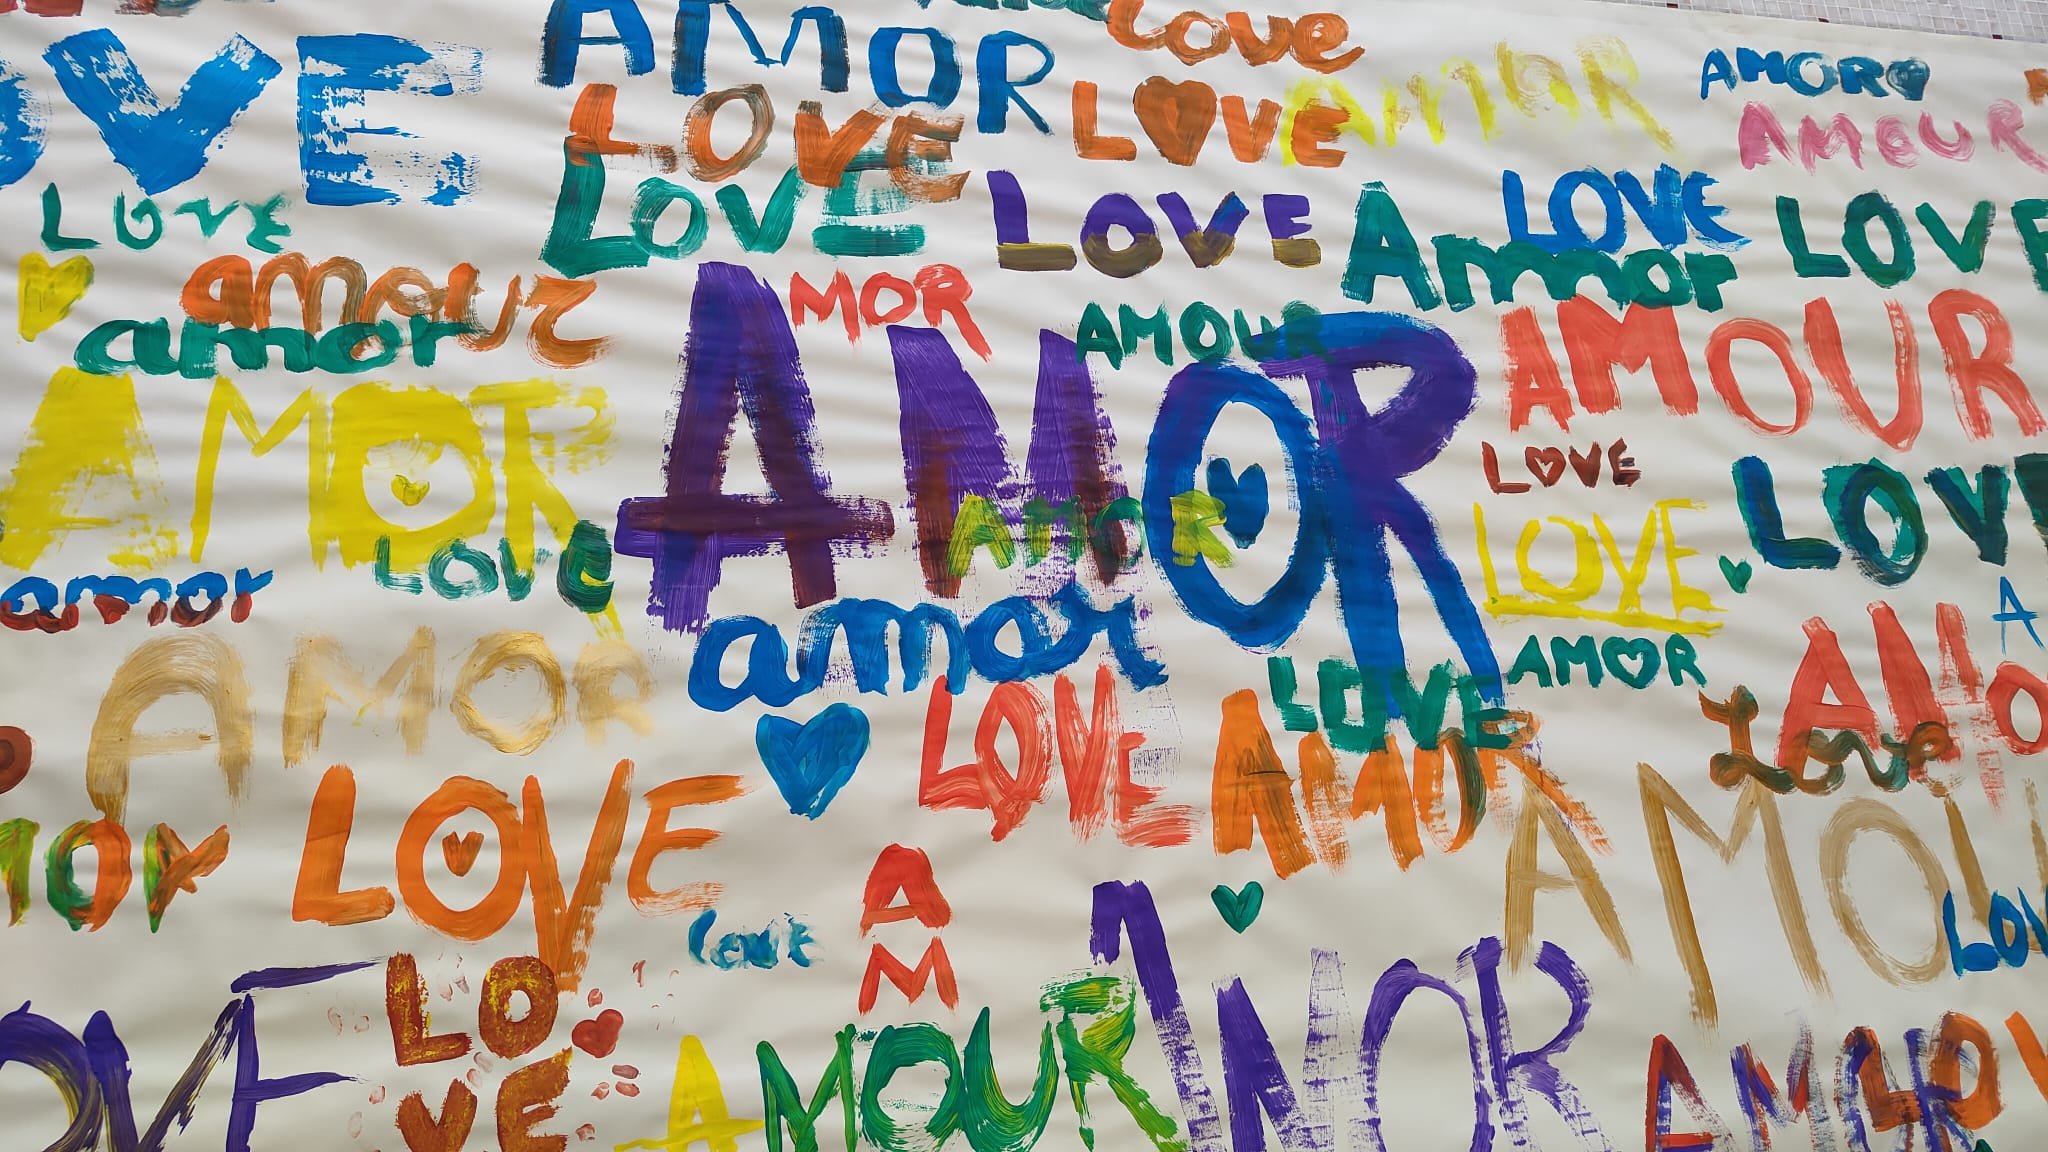 AMOR
love
OVE
LOVE
LOVE
AMOR
AMOR
AMOUR
LOVE
LOVE
LOVE
LOVE
LOVE
Ammor
amour
MOR
AMOUR
AMOUR
amor
AMOR
AMOR
LOVE
LOVE
LOV
AMOR
LOVE
amor
amor
A
AMOR
LOVE
AMOR
AMO
LOVE
AMOR
Love
LOVE
AMOU
MOR
AM
LOVE
LOV
OVE
LO
VE
AMOUR
AMOR
AMOUR
LOV